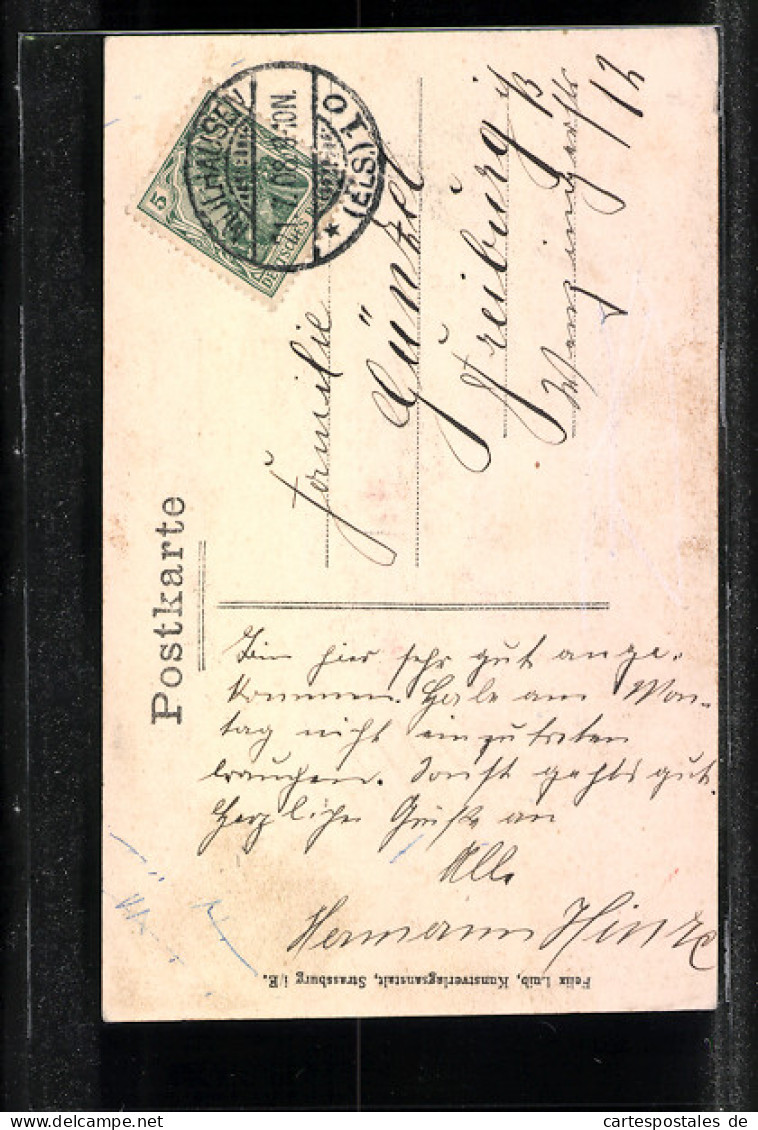 Postkarte
MÜLHAUSEN
(ELS.) 10
1.08.8-10N.
5
DEUTSCHES
Familie
Günzel
Freiburg i/B
12
Bin hier sehr gut ange-
kommen. Habe am Mon-
tag nicht einzutreten
brauchen. Sonst gehts gut.
Herzliche Grüße an
Alle
Hermann Hinze
Felix Luib, Kunstverlagsanstalt, Strassburg i/E.
cartespostales.de